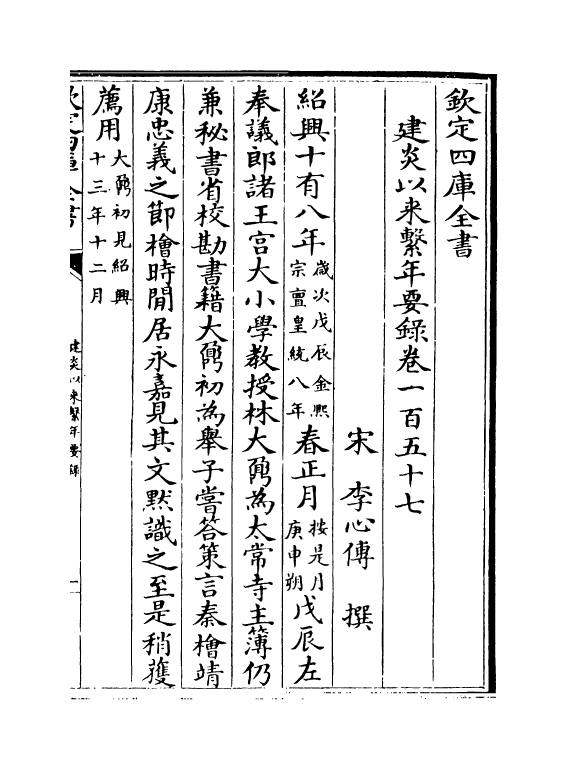 欽定四庫全書
建炎以來繫年要錄卷一百五十七
宋 李心傳 撰
紹興十有八年歲次戊辰金熙宗亶皇統八年春正月按是月庚申朔戊辰左
奉議郎諸王宮大小學教授林大鼐為太常寺主簿仍
兼秘書省校勘書籍大鼐初為舉子嘗答策言秦檜靖
康忠義之節檜時閒居永嘉見其文默識之至是稍蒦
薦用大鼐初見紹興十三年十二月
欽定四庫全書
建炎以來繫年要錄